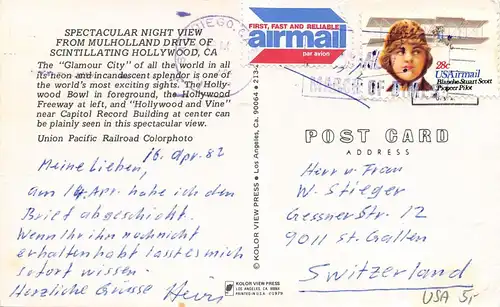 SPECTACULAR NIGHT VIEW
FROM MULHOLLAND DRIVE OF
SCINTILLATING HOLLYWOOD, CA
The "Glamour City" of all the world in all
its neon and incandescent splendor is one of
the world's most exciting sights. The Holly-
wood Bowl in foreground, the Hollywood
Freeway at left, and "Hollywood and Vine"
near Capitol Record Building at center can
be plainly seen in this spectacular view.
Union Pacific Railroad Colorphoto
16. Apr. 82
Meine Lieben,
am 14. Apr. habe ich den
Brief abgeschickt.
Wenn Ihr ihn noch nicht
erhalten habt lasst es mich
sofort wissen.
Herzliche Grüsse
KOLOR VIEW PRESS • Los Angeles, Ca. 90064 • 213-
KOLOR VIEW PRESS
LOS ANGELES, CA
PRINTED IN U.S.A.
FIRST, FAST AND RELIABLE
airmail
par avion
28c
USAirmail
Blanche Stuart Scott
Pioneer Pilot
POST CARD
ADDRESS
Herr u. Frau
W. Stieger
Gessner Str. 12
9011 St. Gallen
Switzerland
USA